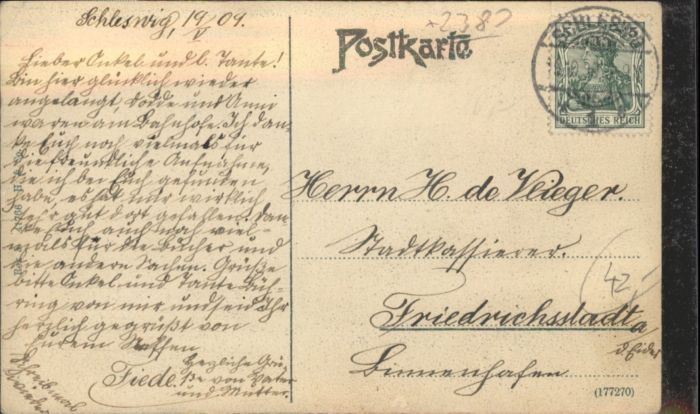 Schleswig, 19/V 09.
Lieber Onkel und l. Tante!
Bin hier glücklich wieder
angelangt, und Anni
waren am Bahnhofe. Ich dan-
ke Euch noch vielmals für
die freundliche Aufnahme,
die ich bei Euch gefunden
habe, es hat mir wirklich
sehr gut dort gefallen! Dan-
ke Euch auch noch viel-
mals für die Bücher und
die andern Sachen. Grüße
bitte Onkel und Tante
ring von mir und seid Ihr
herzlich gegrüßt von
Eurem Neffen
Fiede.
Herzliche Grü-
ße von Vater
und Mutter.
Schreib mal
wieder
2380
Postkarte
SCHLESWIG
DEUTSCHES REICH
Herrn H. de
Stadtkassierer.
42
Friedrichsstadt a
d. Eider
Binnenhafen
(177270)